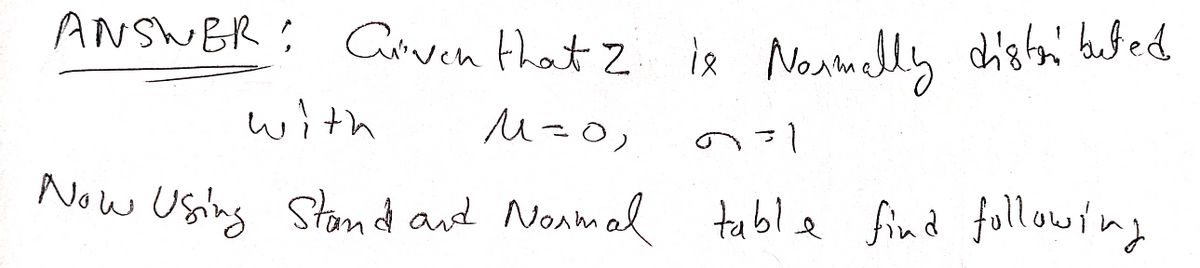 ANSWER: Given that Z is Normally distributed
with μ=0, σ=1
Now Using Standard Normal table find following